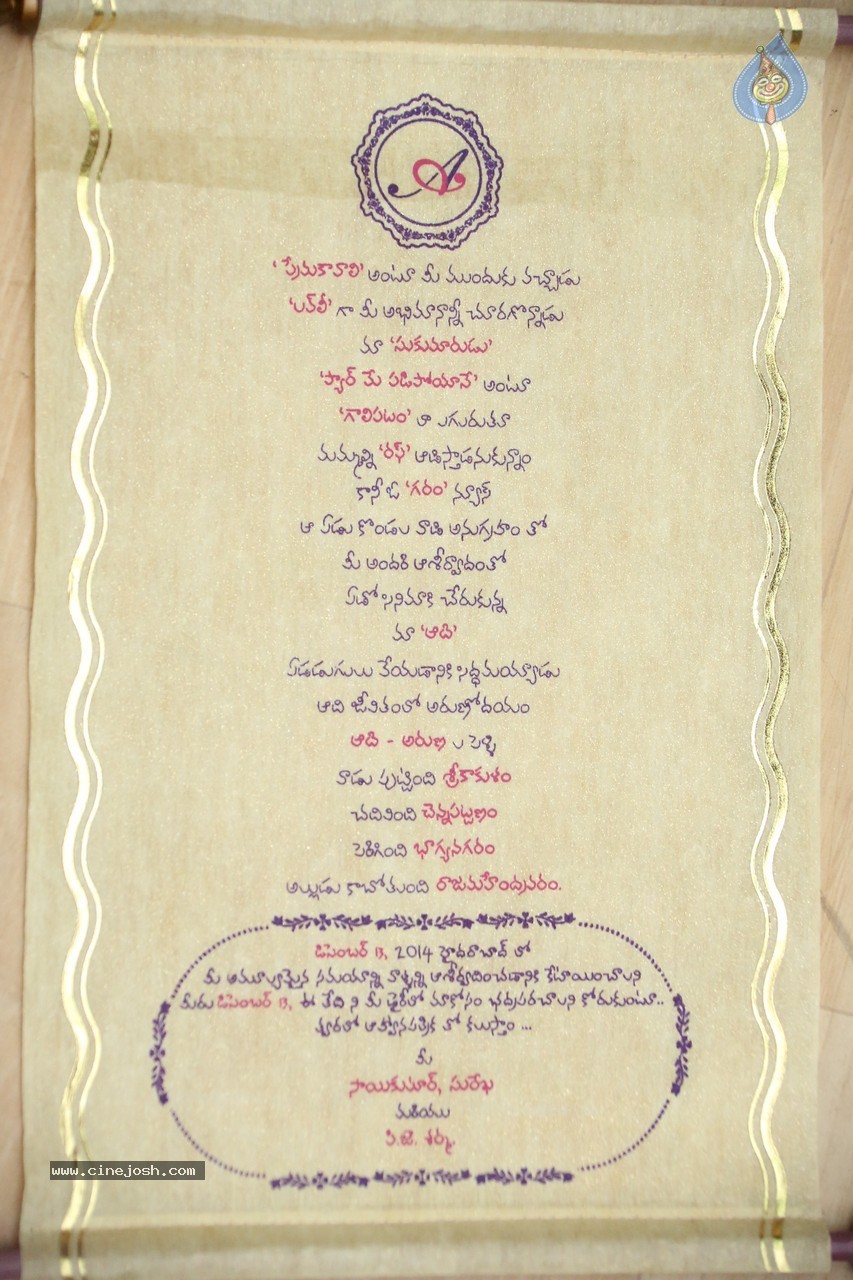 A
'ప్రేమకావాలి' అంటూ మీ ముందుకు వచ్చాడు
'లవ్‌లీ' గా మీ అభిమానాన్నీ చూరగొన్నాడు
మా 'సుకుమారుడు'
'ప్యార్ మే పడిపోయానే' అంటూ
'గాలిపటం' లా ఎగురుతూ
మమ్మల్ని 'రఫ్' ఆడిస్తాడనుకున్నాం
కానీ ఓ 'గరం' న్యూస్
ఆ ఏడు కొండల వాడి అనుగ్రహం తో
మీ అందరి ఆశీర్వాదంతో
ఏడో సినిమాకి చేరుకున్న
మా 'ఆది'
ఏడడుగులు వేయడానికి సిద్ధమయ్యాడు
ఆది జీవితంలో అరుణోదయం
ఆది - అరుణ ల పెళ్ళి
వాడు పుట్టింది శ్రీకాకుళం
చదివింది చెన్నపట్టణం
పెరిగింది భాగ్యనగరం
అల్లుడు కాబోతుంది రాజమహేంద్రవరం.
డిసెంబర్ 13, 2014 హైదరాబాద్ లో
మీ అమూల్యమైన సమయాన్ని వాళ్ళన్ని ఆశీర్వదించడానికి కేటాయించాలని
మీరు డిసెంబర్ 13, ఈ తేది ని మీ డైరీలో మాకోసం భద్రపరచాలని కోరుకుంటూ..
త్వరలో ఆహ్వానపత్రిక తో కలుస్తాం ...
మీ
సాయికుమార్, సురేఖ
మరియు
పి.జె. శర్మ.
www.cinejosh.com